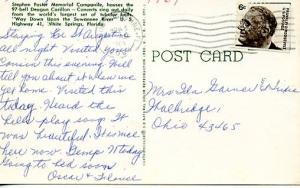 Stephen Foster Memorial Campanile, houses the
97-bell Deagan Carillon — Concerts ring out
from the world's largest set of tubular bells,
"Way Down Upon the Suwannee River" U. S.
Highway 41, White Springs, Florida.
Staying in St Augustine
all night. Visited your
Cousin this evening. Will
tell you about it when we
get home. Visited this
today. Heard the
bells play song. It
was beautiful. It's nice
here now. Temp 71 today
Going to bed soon.
Oscar &
6¢
POST CARD
Mrs Ida
Walbridge,
Ohio 43465